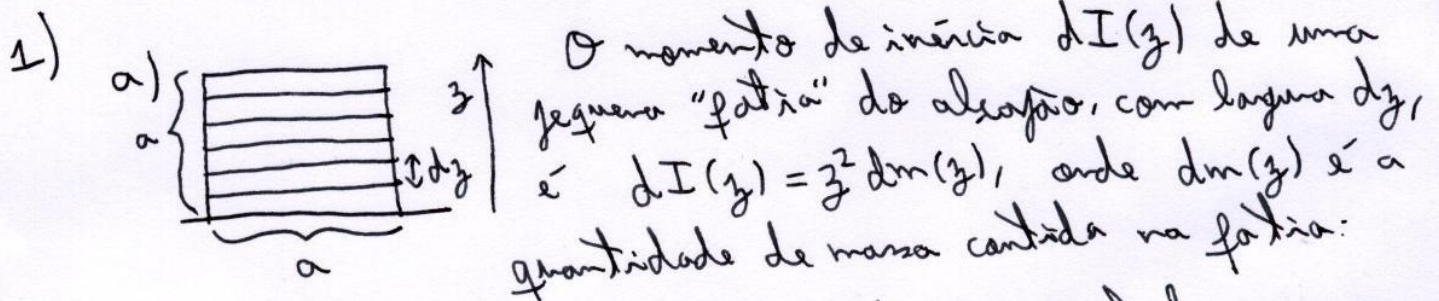 1)
a)
a
a
dz
z
O momento de inércia dI(z) de uma
pequena "fatia" do alçapão, com largura dz,
é dI(z) = z² dm(z), onde dm(z) é a
quantidade de massa contida na fatia: